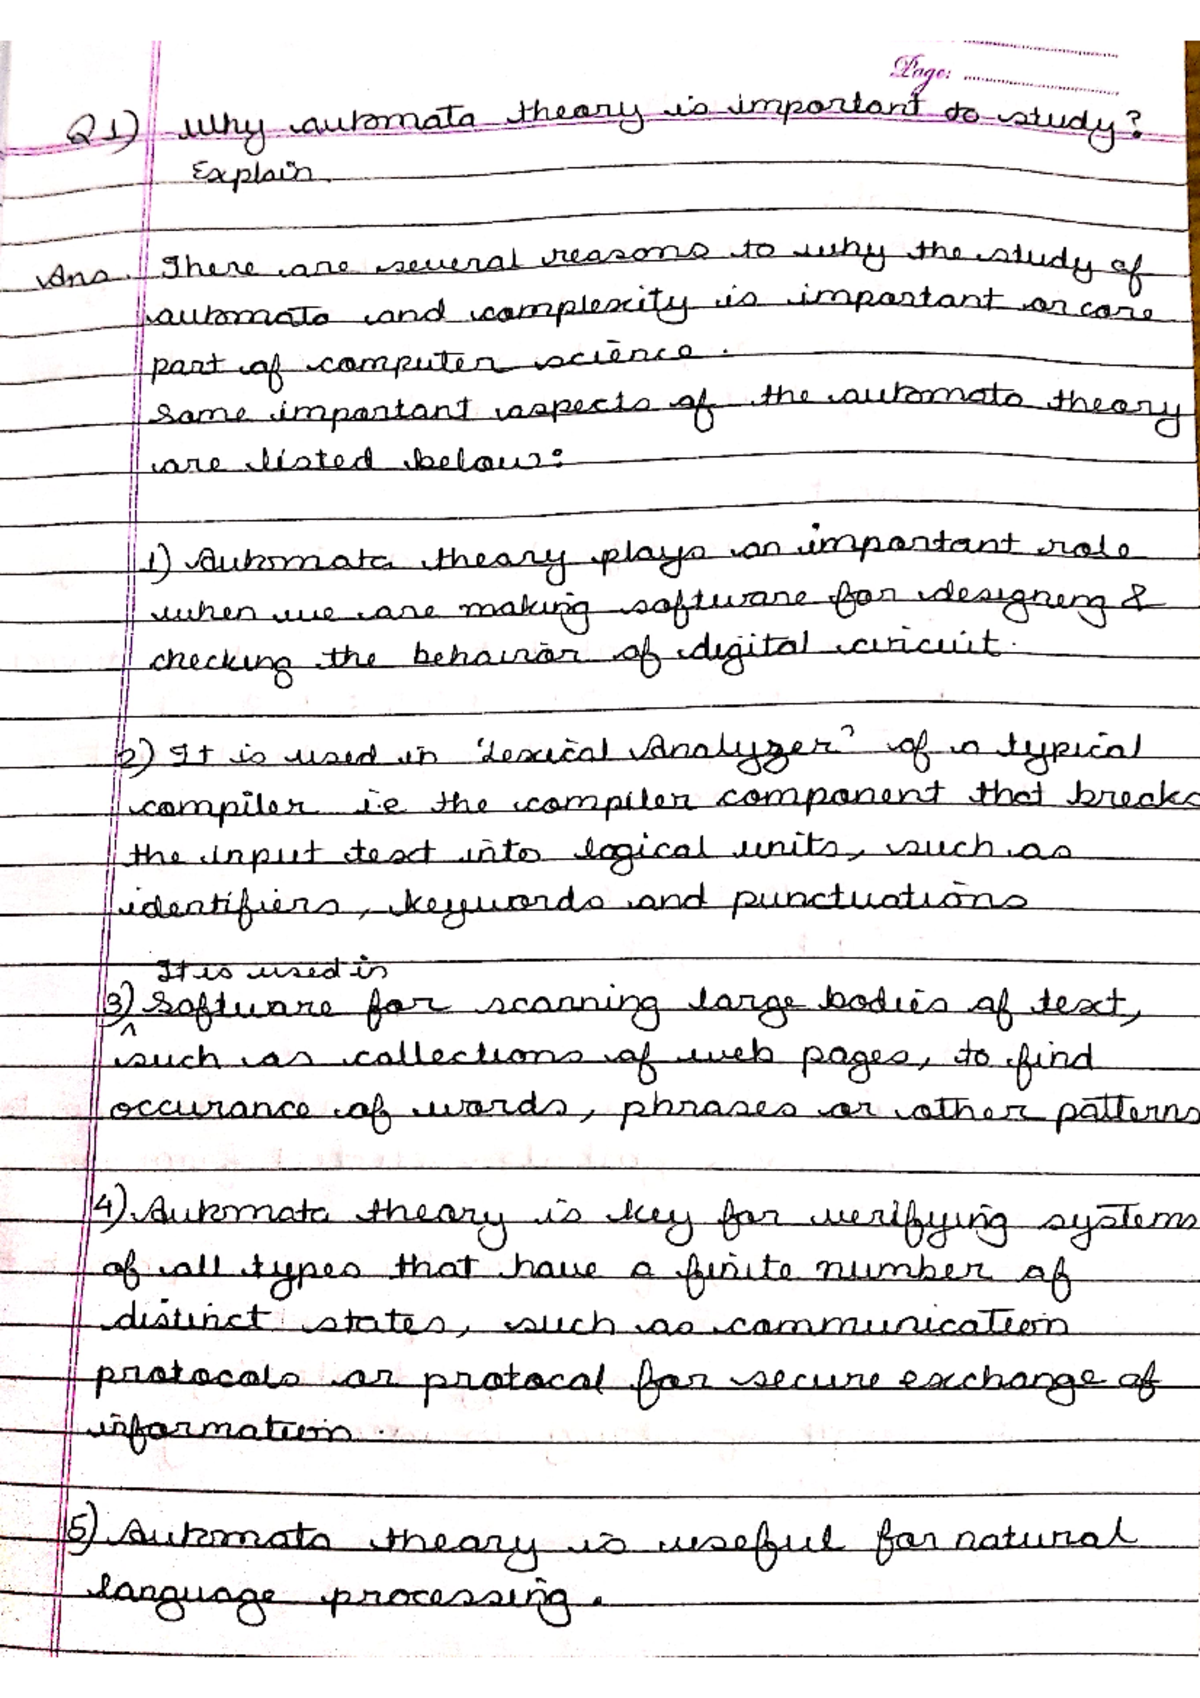 Page:
Q1) Why automata theory is important to study?
Explain.
Ans. There are several reasons to why the study of
automata and complexity is important or core
part of computer science.
Some important aspects of the automata theory
are listed below:
1) Automata theory plays an important role
when we are making software for designing &
checking the behaivior of digital circuit.
2) It is used in 'Lexical Analyzer' of a typical
compiler i.e the compiler component that breaks
the input text into logical units, such as
identifiers, keywords and punctuations
It is used in
3) ^ Software for scanning large bodies of text,
such as collections of web pages, to find
occurance of words, phrases or other patterns
4) Automata theory is key for verifying systems
of all types that have a finite number of
distinct states, such as communication
protocols or protocol for secure exchange of
information.
5) Automata theory is useful for natural
language processing.